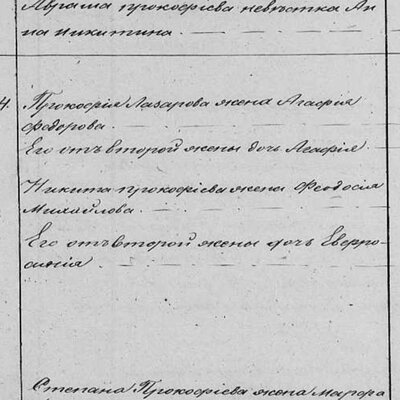 Абрама Прокофіева невѣстка Ан
на Никитина
4. Прокофія Лазарова жена Агафія
Федорова
Его отъ второй жены дочь Агафія
Никита Прокофіева жена Феодосія
Михайлова
Его отъ второй жены дочь Евфро-
синія
Степана Прокофіева жена Марфа